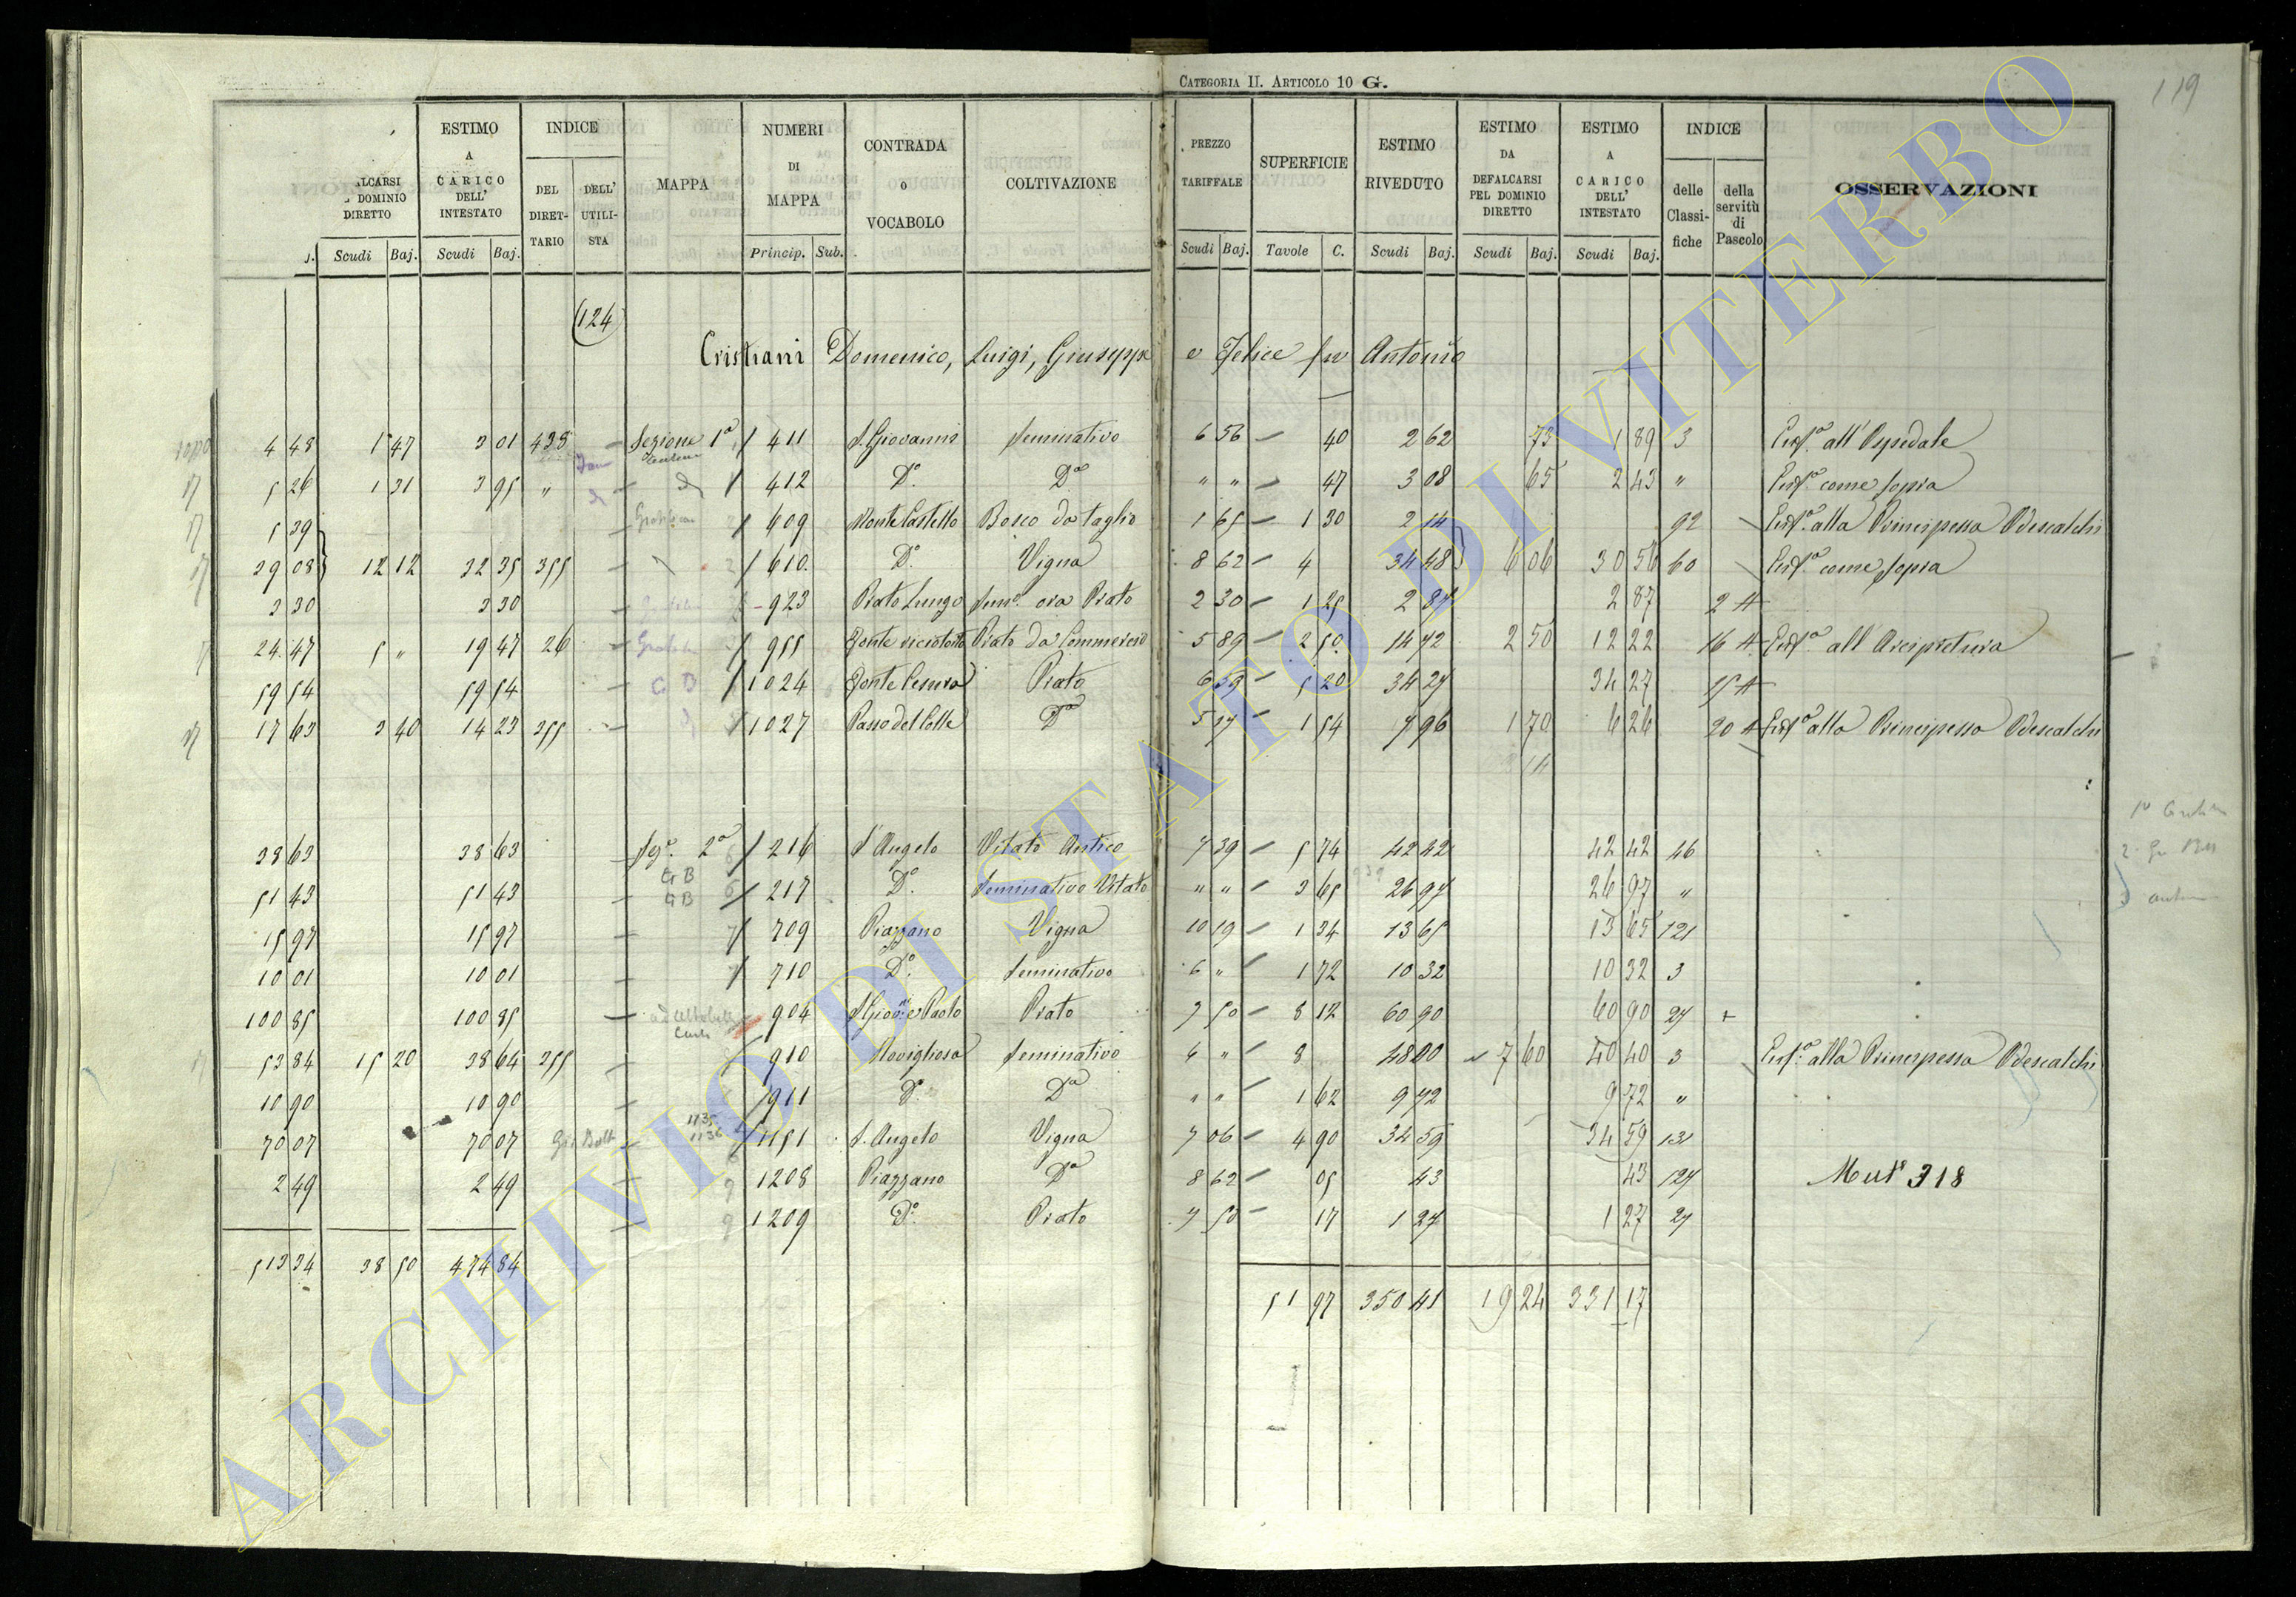 CATEGORIA II. ARTICOLO 10 G.
119
ALCARSI DOMINIO DIRETTO | ESTIMO A CARICO DELL' INTESTATO | INDICE DEL DIRETTARIO | DELL' UTILISTA | MAPPA | NUMERI DI MAPPA | CONTRADA O VOCABOLO | COLTIVAZIONE | PREZZO TARIFFALE | SUPERFICIE | ESTIMO RIVEDUTO | ESTIMO DA DEFALCARSI PEL DOMINIO DIRETTO | ESTIMO A CARICO DELL' INTESTATO | INDICE delle Classifiche | della servitù di Pascolo | OSSERVAZIONI
J. | Scudi | Baj. | Scudi | Baj. | Princip. | Sub. | Scudi | Baj. | Tavole | C. | Scudi | Baj. | Scudi | Baj. | Scudi | Baj.
(124)
Cristiani Domenico, Luigi, Giuseppe e Felice fu Antonio
4 48 | 1 47 | 3 01 | 438 | Sezione 1a | 411 | S. Giovanni | Seminativo | 6 56 | 40 | 2 62 | 73 | 1 89 | 3 | Enf.a all'Ospedale
5 26 | 1 31 | 3 95 | " | 412 | Do. | Do | " " | 47 | 3 08 | 65 | 2 43 | " | Enf.a come sopra
5 39 | 609 | Monte Castello | Bosco da taglio | 1 65 | 1 30 | 2 14 | 92 | Enf.a alla Principessa Odescalchi
39 08 | 12 12 | 32 35 | 355 | 610 | Do. | Vigna | 8 62 | 4 | 34 48 | 6 06 | 30 56 | 60 | Enf.a come sopra
3 30 | 3 30 | 923 | Prato Lungo | Sem.o ora Prato | 2 30 | 1 25 | 2 87 | 2 87 | 2 A
24 47 | 5 " | 19 47 | 26 | 955 | Prato da Commercio | 5 89 | 2 50 | 14 72 | 2 50 | 12 22 | 16 A | Enf.a all'Arcipretura
59 54 | 59 54 | G B | 1024 | Prato | 6 59 | 5 20 | 34 27 | 34 27 | 15 A
17 63 | 3 40 | 14 23 | 355 | 1027 | Passo del Colle | Do | 5 17 | 1 54 | 7 96 | 1 70 | 6 26 | 20 A | Enf.a alla Principessa Odescalchi
38 63 | 38 63 | Sez.e 2a | 216 | S. Angelo | Vitato Antico | 7 39 | 5 74 | 42 42 | 42 42 | 46
51 43 | 51 43 | G B | 217 | Do. | Seminativo Vitato | " " | 3 65 | 26 97 | 26 97 | "
15 97 | 15 97 | 709 | Piazzano | Vigna | 10 19 | 1 34 | 13 65 | 13 65 | 121
10 01 | 10 01 | 710 | Do. | Seminativo | 6 " | 1 72 | 10 32 | 10 32 | 3
100 85 | 100 85 | 904 | S. Giov.ni e Paolo | Prato | 7 50 | 8 12 | 60 90 | 60 90 | 27 | +
53 84 | 15 20 | 38 64 | 355 | 910 | Rovigliosa | Seminativo | 6 " | 8 | 48 00 | 7 60 | 40 40 | 3 | Enf.a alla Principessa Odescalchi
10 90 | 10 90 | 911 | Do. | Do | " " | 1 62 | 9 72 | 9 72 | "
70 07 | 70 07 | 1135 1136 | 1151 | S. Angelo | Vigna | 7 06 | 4 90 | 34 59 | 34 59 | 131
2 49 | 2 49 | 1208 | Piazzano | Do | 8 62 | 05 | 43 | 43 | 127 | Mut.a 318
1209 | Do. | Prato | 7 50 | 17 | 1 27 | 1 27 | 27
513 34 | 38 50 | 474 84
51 97 | 350 41 | 19 24 | 331 17
ARCHIVIO DI STATO DI VITERBO